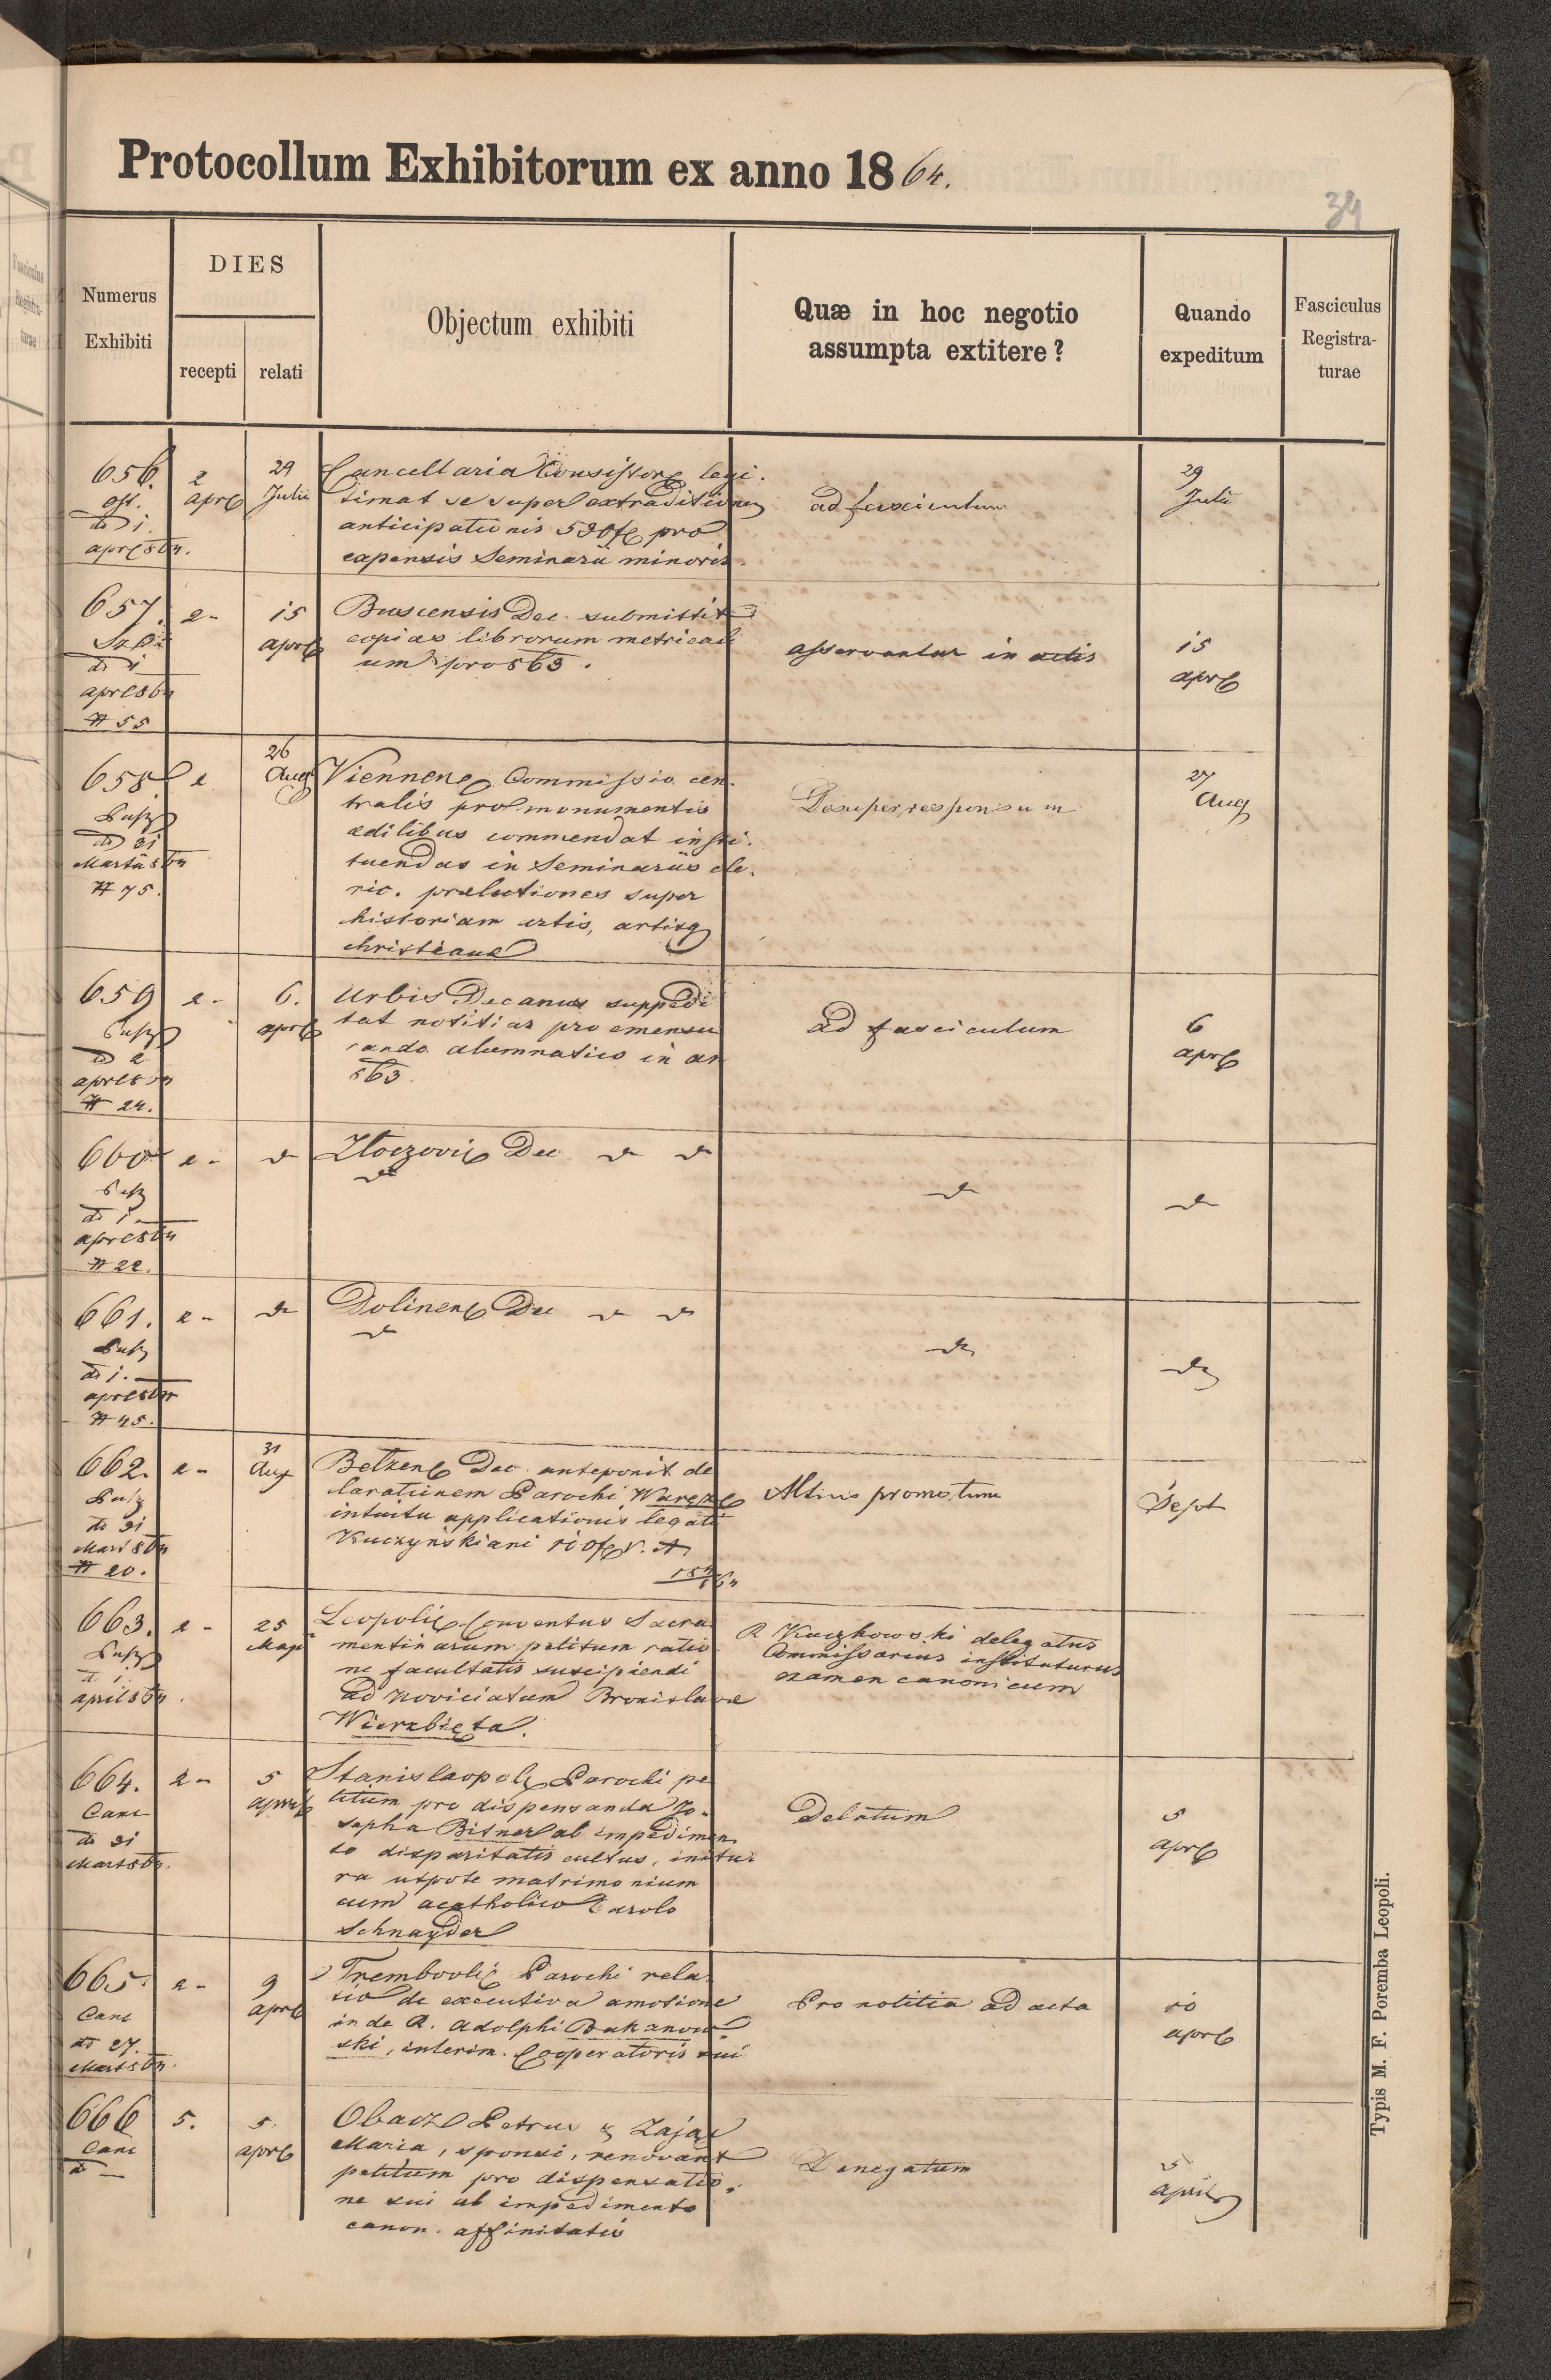 Protocollum Exhibitorum ex anno 1864.
34
Numerus Exhibiti
DIES
recepti
relati
Objectum exhibiti
Quæ in hoc negotio assumpta extitere?
Quando expeditum
Fasciculus Registra-turae
656.
2 apr
29 Julii
Cancellaria Consistor legi.
timat se super extraditionem
anticipationis 530 f pro
expensis Seminarii minoris
ad fasciculum
29 Julii
do 1
apr 864.
657.
2-
15 apr
Buscensis Dec. submittit
copias librorum metricali
um pro 863.
asservantur in actis
15 apr
do 1
apr 864
N 55
658
2
26 Aug
Viennens Commissio cen.
tralis pro monumentis
ædilibus commendat insti.
tuendas in Seminariis cle.
ric. prælectiones super
historiam artis, artisq
christianæ
responsum
27 Aug
do 31
Martii 864
N 75.
659
2-
6. apr
Urbis Decanus suppedi
tat notitias pro emensu
rando alumnatico in an
863.
ad fasciculum
6 apr
do 2
apr 864
N 24.
660
2-
do
Zloczovi Dec do do
do
do
do
do 1
apr 864
N 22.
661.
2-
do
Dolinens Dec do do
do
do
do
do 1.
apr 864
N 45.
662.
2-
31 Aug
Belzens Dec. anteponit de
clarationem Parochi Warez
intuitu applicationis legati
Kuczyńskiani 10 f
Altius promotum
Sept
do 31
Mart 864
N 20.
663.
2-
25 Maji
Leopoli Conventus Sacra
mentinarum petitum ratio
ne facultatis suscipiendi
ad noviciatum Bronislavæ
Wierzbięta.
R Kuczkowski delegatus
Commissarius instituturus
examen canonicum
do 1
april 864.
664.
2-
5 apr
Stanislaopol Parochi pe
titum pro dispensanda Jo-
sepha Bitner ab impedimen
to disparitatis cultus, initu-
ra utpote matrimonium
cum acatholico Carolo
Schnayder
Delatum
5 apr
Canc
do 31
Mart 864.
665.
2-
9 apr
Trembovli Parochi rela
tio de executiva amotione
inde R. Adolphi Bakanow-
ski, interim. Cooperatoris sui
Pro notitia ad acta
10 apr
Canc
do 27.
Mart 864.
666
5.
5. apr
Obacz Petrus & Zając
Maria, sponsi, renovant
petitum pro dispensatio-
ne sui ab impedimento
canon. affinitatis
Denegatum
5 april
Canc
do —
Typis M. F. Poremba Leopoli.